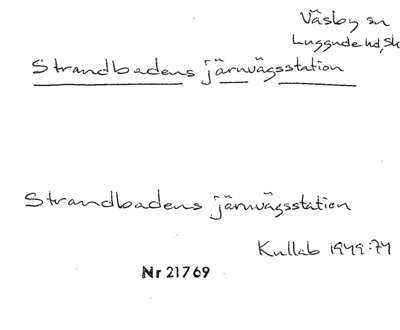 Väsby sn
Luggude hd, Sk
Strandbadens järnvägsstation
Strandbadens järnvägsstation
Kullab 1949:74
Nr 21769